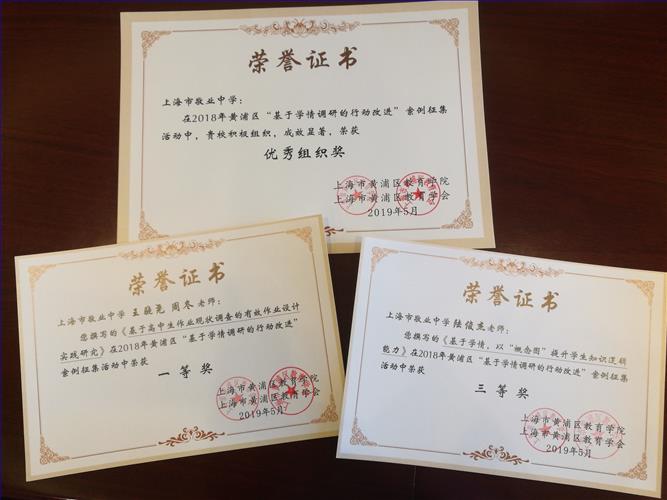 荣誉证书
上海市敬业中学：
在2018年黄浦区“基于学情调研的行动改进”案例征集
活动中，贵校积极组织，成效显著，荣获
优秀组织奖
上海市黄浦区教育学院
上海市黄浦区教育学会
2019年5月
荣誉证书
上海市敬业中学 王晓尧 周冬老师：
您撰写的《基于高中生作业现状调查的有效作业设计
实践研究》在2018年黄浦区“基于学情调研的行动改进”
案例征集活动中荣获
一等奖
上海市黄浦区教育学院
上海市黄浦区教育学会
2019年5月
荣誉证书
上海市敬业中学陆俊杰老师：
您撰写的《基于学情，以“概念图”提升学生知识逻辑
能力》在2018年黄浦区“基于学情调研的行动改进”案例征集
活动中荣获
三等奖
上海市黄浦区教育学院
上海市黄浦区教育学会
2019年5月